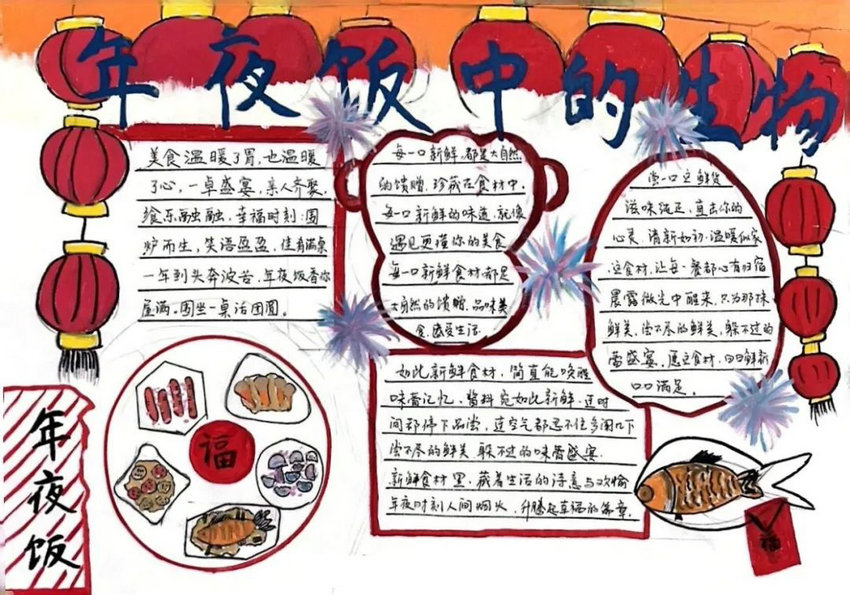 年夜饭中的生物
美食温暖了胃，也温暖
了心，一桌盛宴，亲人齐聚，
餐乐融融，幸福时刻：围
炉而坐，笑语盈盈，佳肴满桌
一年到头奔波苦，年夜饭香你
屋满。围坐一桌话团圆。
每一口新鲜，都是大自然
的馈赠，珍藏在食材中，
每一口新鲜的味道，就像
遇见更懂你的美食
每一口新鲜食材，都是
大自然的馈赠，品味美
食，感受生活
尝一口豆鲜货
滋味纯正，直击你的
心灵，清新如初，温暖似家
豆食材，让每一餐都心有归宿
晨露微光中醒来，只为那抹
鲜美，尝不尽的鲜美，躲不过的
蕾盛宴，愿豆食材，日日鲜新
口口满足。
如此新鲜食材，简直能唤醒
味蕾记忆，酱料宛如此新鲜，连时
间都停下品尝，连空气都忍不住多闻几下
尝不尽的鲜美，躲不过的味蕾盛宴.
新鲜食材里，藏着生活的诗意与欢愉
年夜时刻人间烟火，升腾起幸福的篇章.
福
年夜饭
福